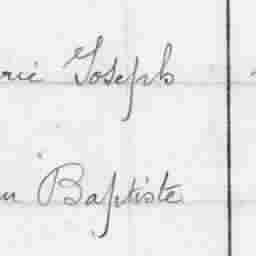 rie Joseph
n Baptiste